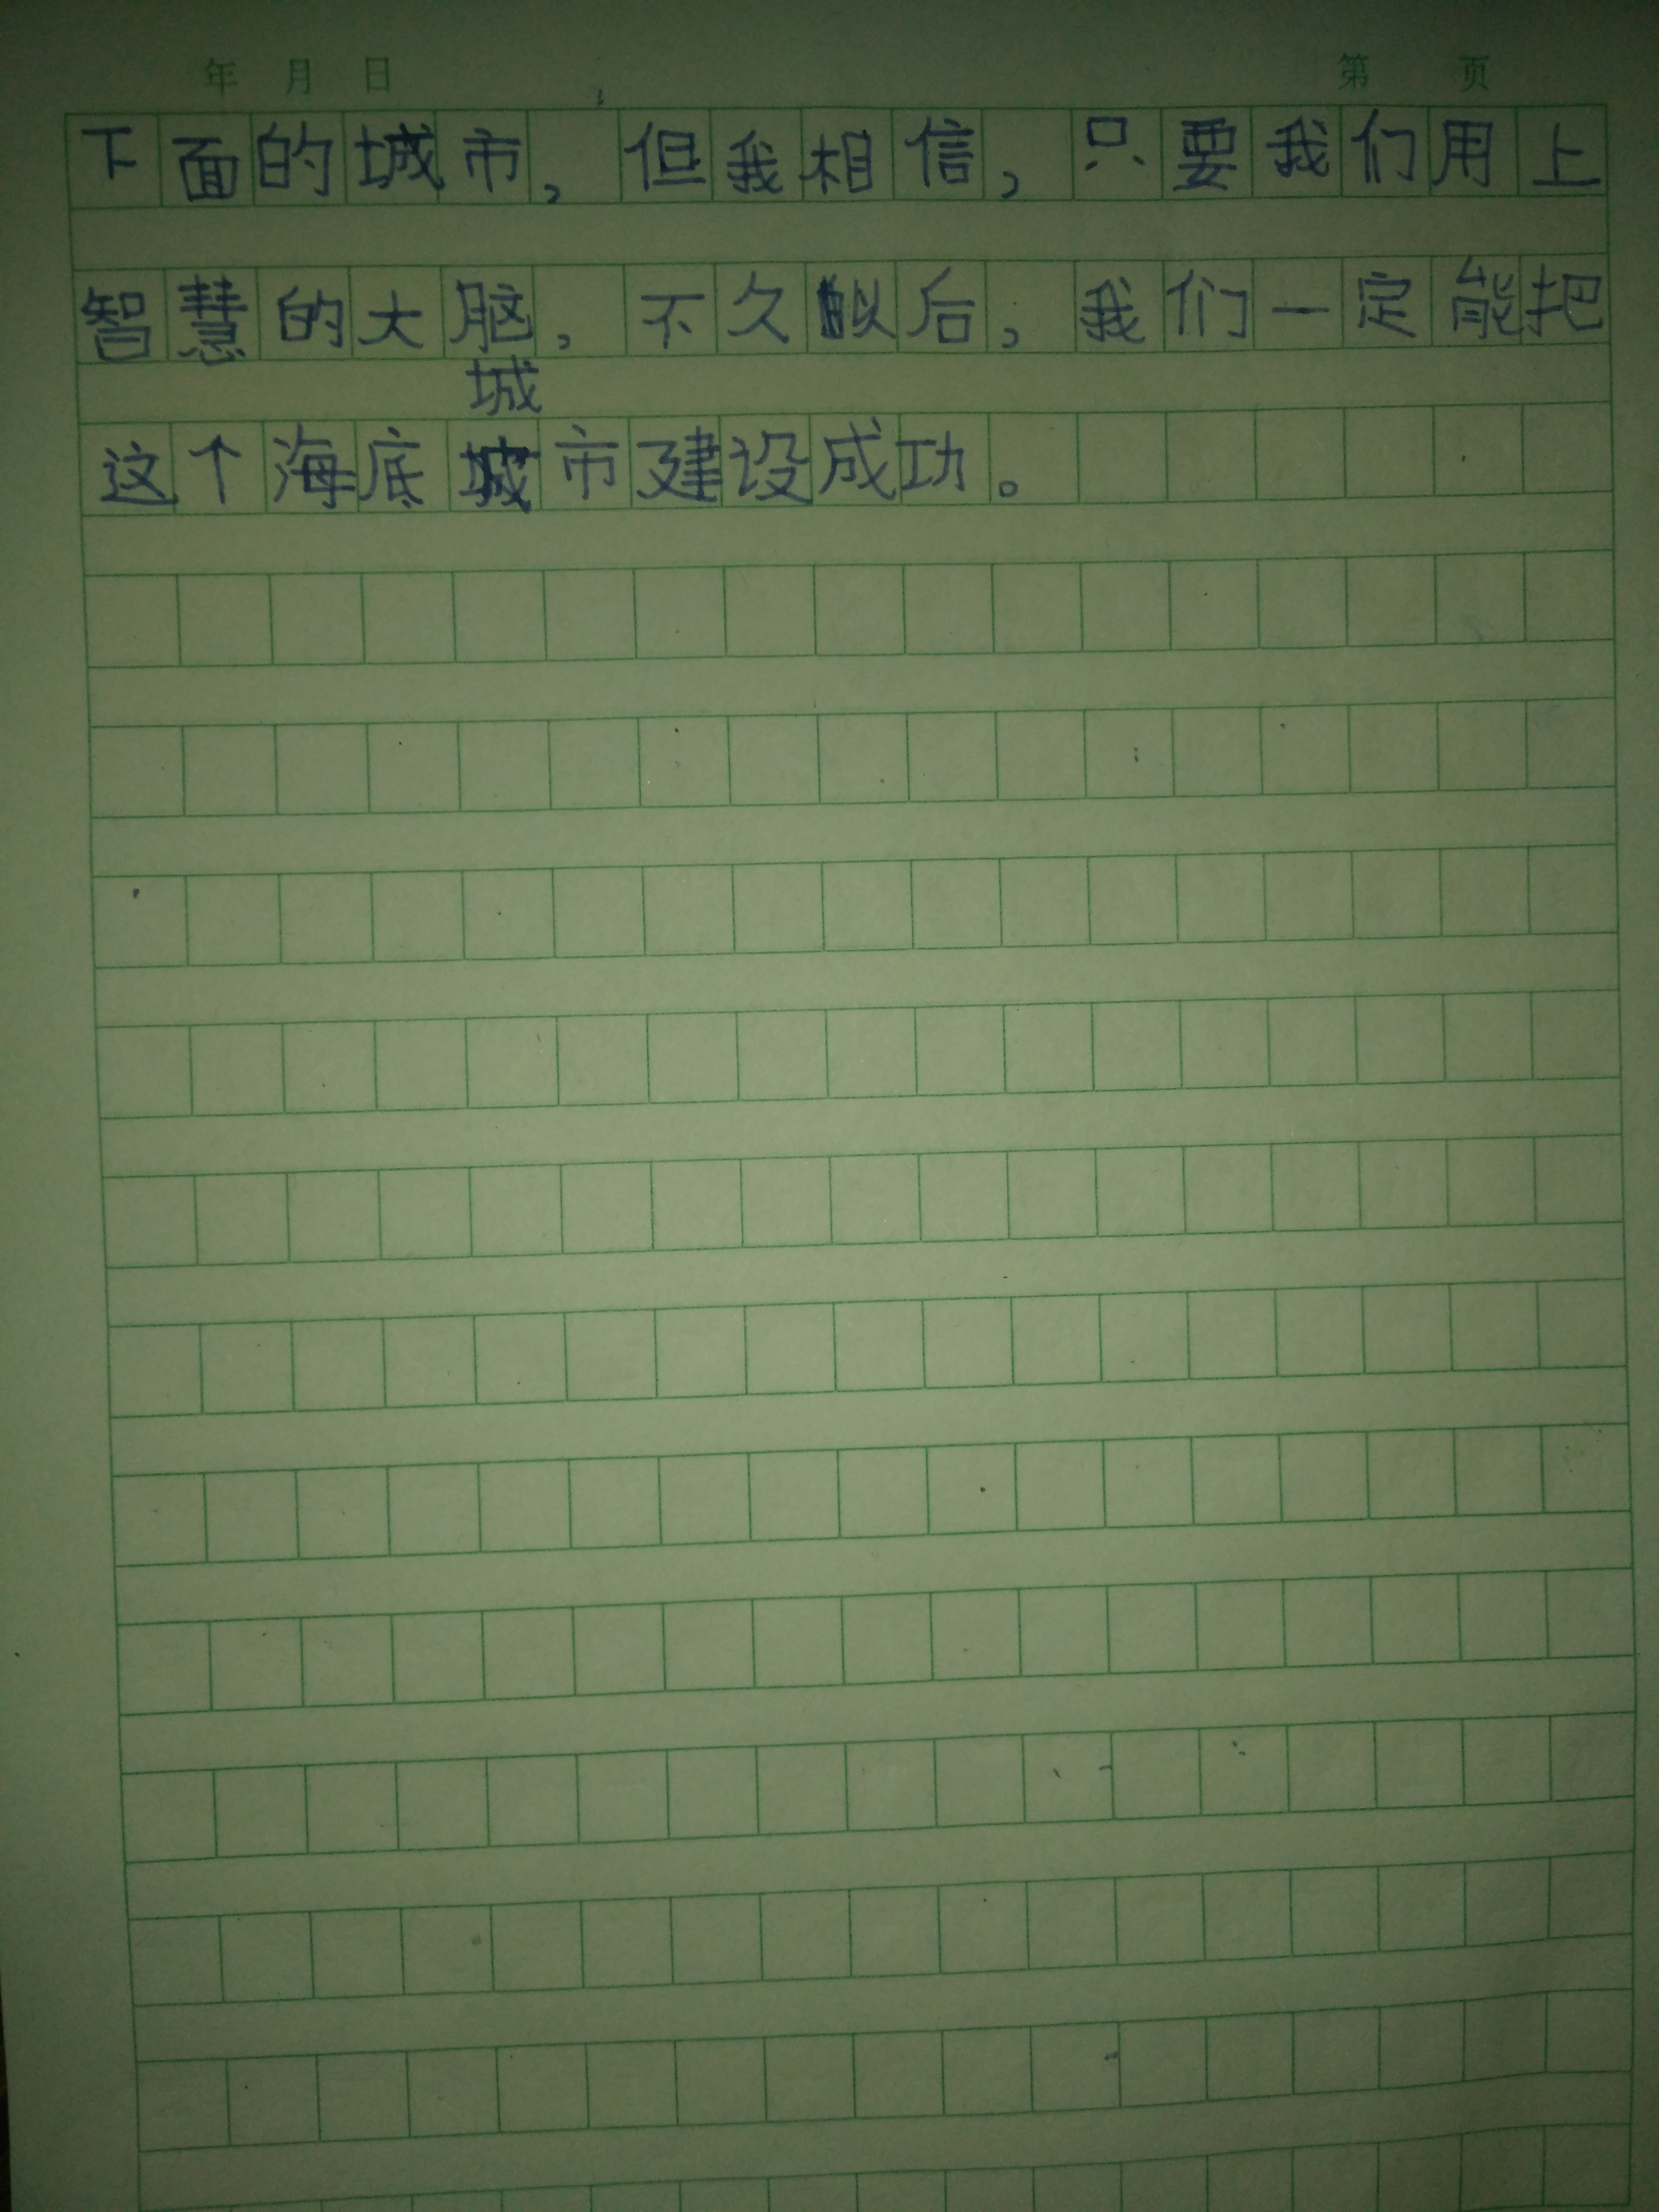 年 月 日 第 页
下面的城市，但我相信，只要我们用上
智慧的大脑，不久以后，我们一定能把
城
这个海底城市建设成功。